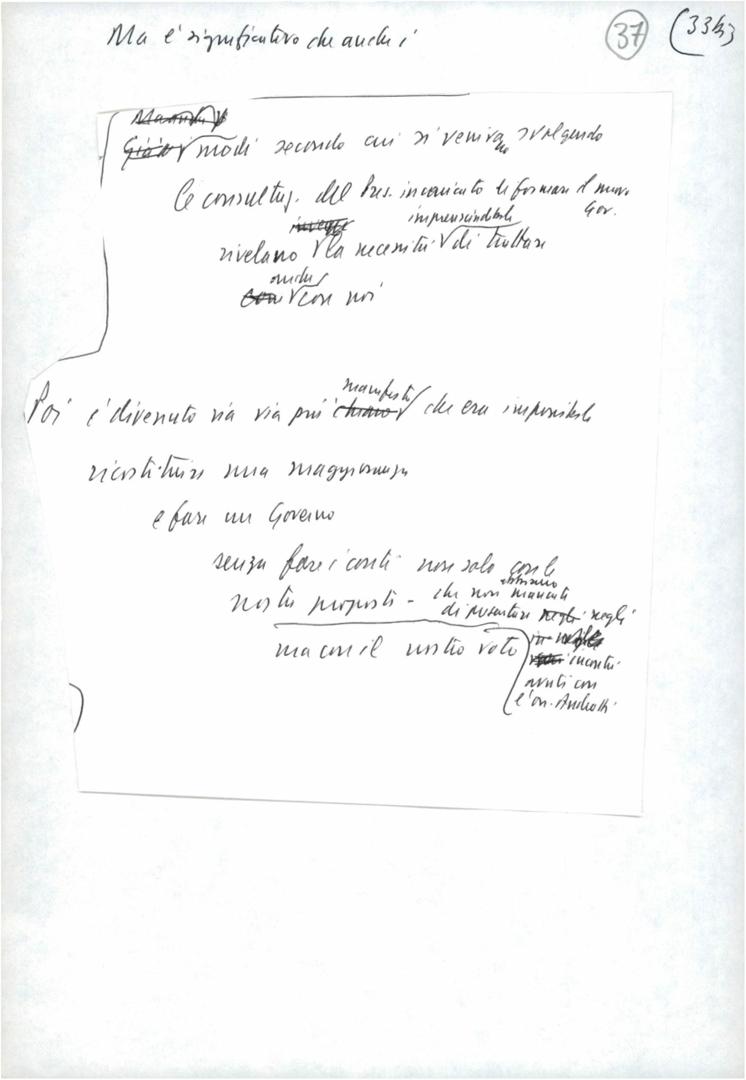 37 (33bis)
Ma è significativo che anche i
modi secondo cui si venivano svolgendo
le consultaz. del Pres. incaricato di formare il nuovo
Gov.
imprescindibile
rivelano la necessità di trattare
anche
con noi
manifesto
Poi è divenuto via via più chiaro che era impossibile
ricostituire una maggioranza
e fare un Governo
senza fare i conti non solo con le
nostre proposte - che non mancati
di presentare negli
ma con il nostro voto
incontri
avuti con
l'on. Andreotti